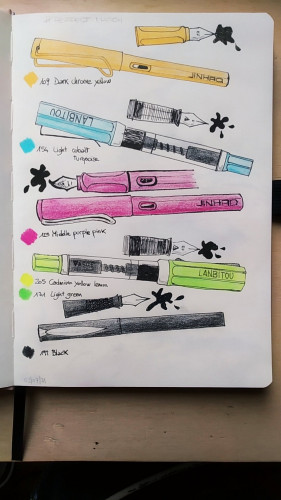 JINHAO
109 Dark chrome yellow
LANBITOU
154 Light cobalt
turquoise
JINHAO
125 Middle purple pink
LANBITOU
205 Cadmium yellow lemon
171 Light green
199 Black